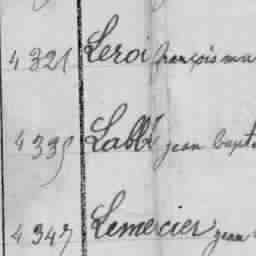 4321 Leroi françois ma
4335 Labbé jean bapt
4347 Lemercier jean